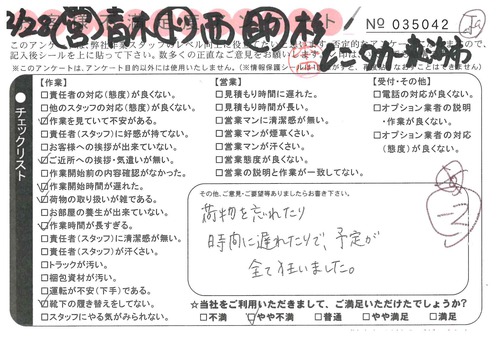 2/28 営 青木 ト 西 助 杉
No 035042
このアンケートは、弊社作業スタッフのレベル向上に役
記入後シールを上に貼って下さい。数多くの正直なご意見をお
※このアンケートは、アンケート目的以外には使用いたしません。
チェックリスト
【作業】
□責任者の対応(態度)が良くない。
□他のスタッフの対応(態度)が良くない。
☑作業を見ていて不安がある。
□責任者(スタッフ)に好感が持てない。
□お客様への挨拶が出来ていない。
☑ご近所への挨拶・気遣いが無い。
□作業開始前の内容確認がなかった。
☑作業開始時間が遅れた。
☑荷物の取り扱いが雑である。
□お部屋の養生が出来ていない。
☑作業時間が長すぎる。
□責任者(スタッフ)に清潔感が無い。
□責任者(スタッフ)が汗くさい。
□トラックが汚い。
□梱包資材が汚い。
□運転が不安(下手)である。
☑靴下の履き替えをしてない。
□スタッフにやる気がみられない。
【営業】
□見積もり時間に遅れた。
□見積もり時間が長い。
□営業マンに清潔感が無い。
□営業マンが煙草くさい。
□営業マンが汗くさい。
□営業態度が良くない。
□営業の説明と作業が一致してない。
【受付・その他】
□電話の対応が良くない。
□オプション業者の説明
・作業が良くない。
□オプション業者の対応
(態度)が良くない。
その他、ご意見・ご要望等ありましたらお書き下さい。
荷物を忘れたり
時間に遅れたりで、予定が
全て狂いました。
-2
☆当社をご利用いただきまして、ご満足いただけたでしょうか?
□不満 ☑やや不満 □普通 □やや満足 □満足